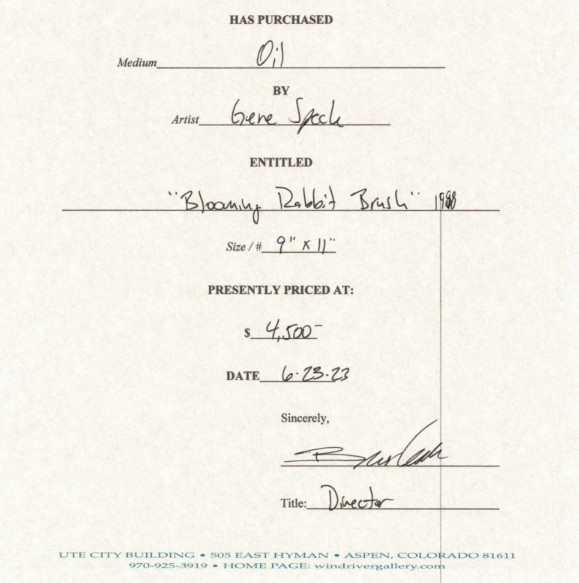 HAS PURCHASED
Medium Oil
BY
Artist Gene Speck
ENTITLED
"Blooming Rabbit Brush"
Size / # 9" x 11"
PRESENTLY PRICED AT:
$ 4,500-
DATE 6-23-23
Sincerely,
Title: Director
UTE CITY BUILDING • 505 EAST HYMAN • ASPEN, COLORADO 81611
970-925-3919 • HOME PAGE: windrivergallery.com